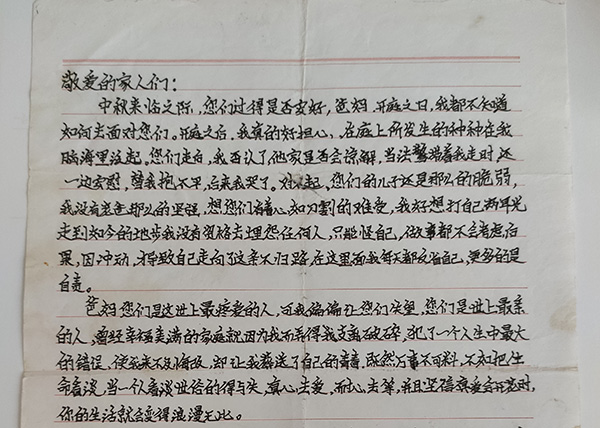 敬爱的家人们：
中秋来临之际，您们过得是否安好，爸妈.开庭之日，我都不知道
如何去面对您们。开庭之后.我真的好担心，在庭上所发生的种种在我
脑海里泛起。您们走后，我否认了他家是否会谅解，当法警带着我走时，还
一边安慰，替我抱不平，后来我哭了。对不起，您们的儿子还是那么的脆弱，
我没有爸爸那么的坚强，想您们有着心如刀割的难受，我好想打自己两耳光
走到如今的地步我没有资格去埋怨任何人，只能怪自己，做事都不会考虑后
果，因冲动，才导致自己走向了这条不归路.在这里面我每天都反省自己，更多的是
自责。
爸妈您们是这世上最疼爱的人，而我偏偏让您们失望，您们是世上最亲
的人，曾经幸福美满的家庭就因为我而弄得我支离破碎，犯了一个人生中最大
的错误，使我来不及悔改，却让我葬送了自己的青春，既然万事不可料，不如把生
命看淡，当一个人看淡世俗的得与失，真心去爱，而心去等，并且坚信真爱会开花时，
你的生活就会变得浪漫无比。